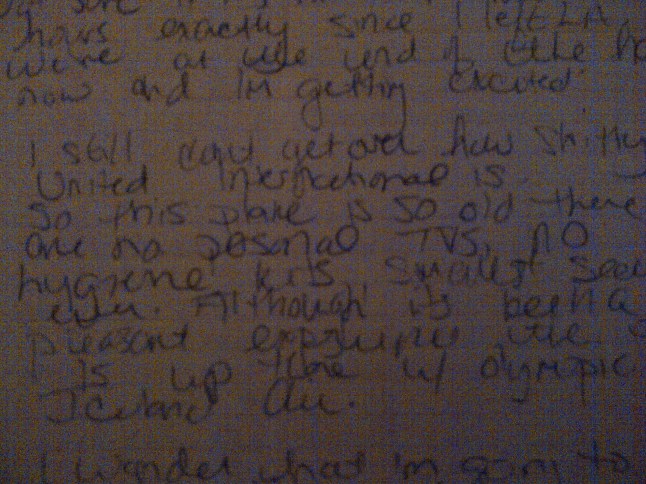 hours exactly since I left LA,
we're at the end of the
now and I'm getting excited
I still can't get over how shitty
United International is
So this plane is so old there
are no personal TVs, no
hygiene kits, smallest
ever. Although its been a
pleasant experience
is up there w/ olympic
Iceland Air.
I wonder what I'm going to